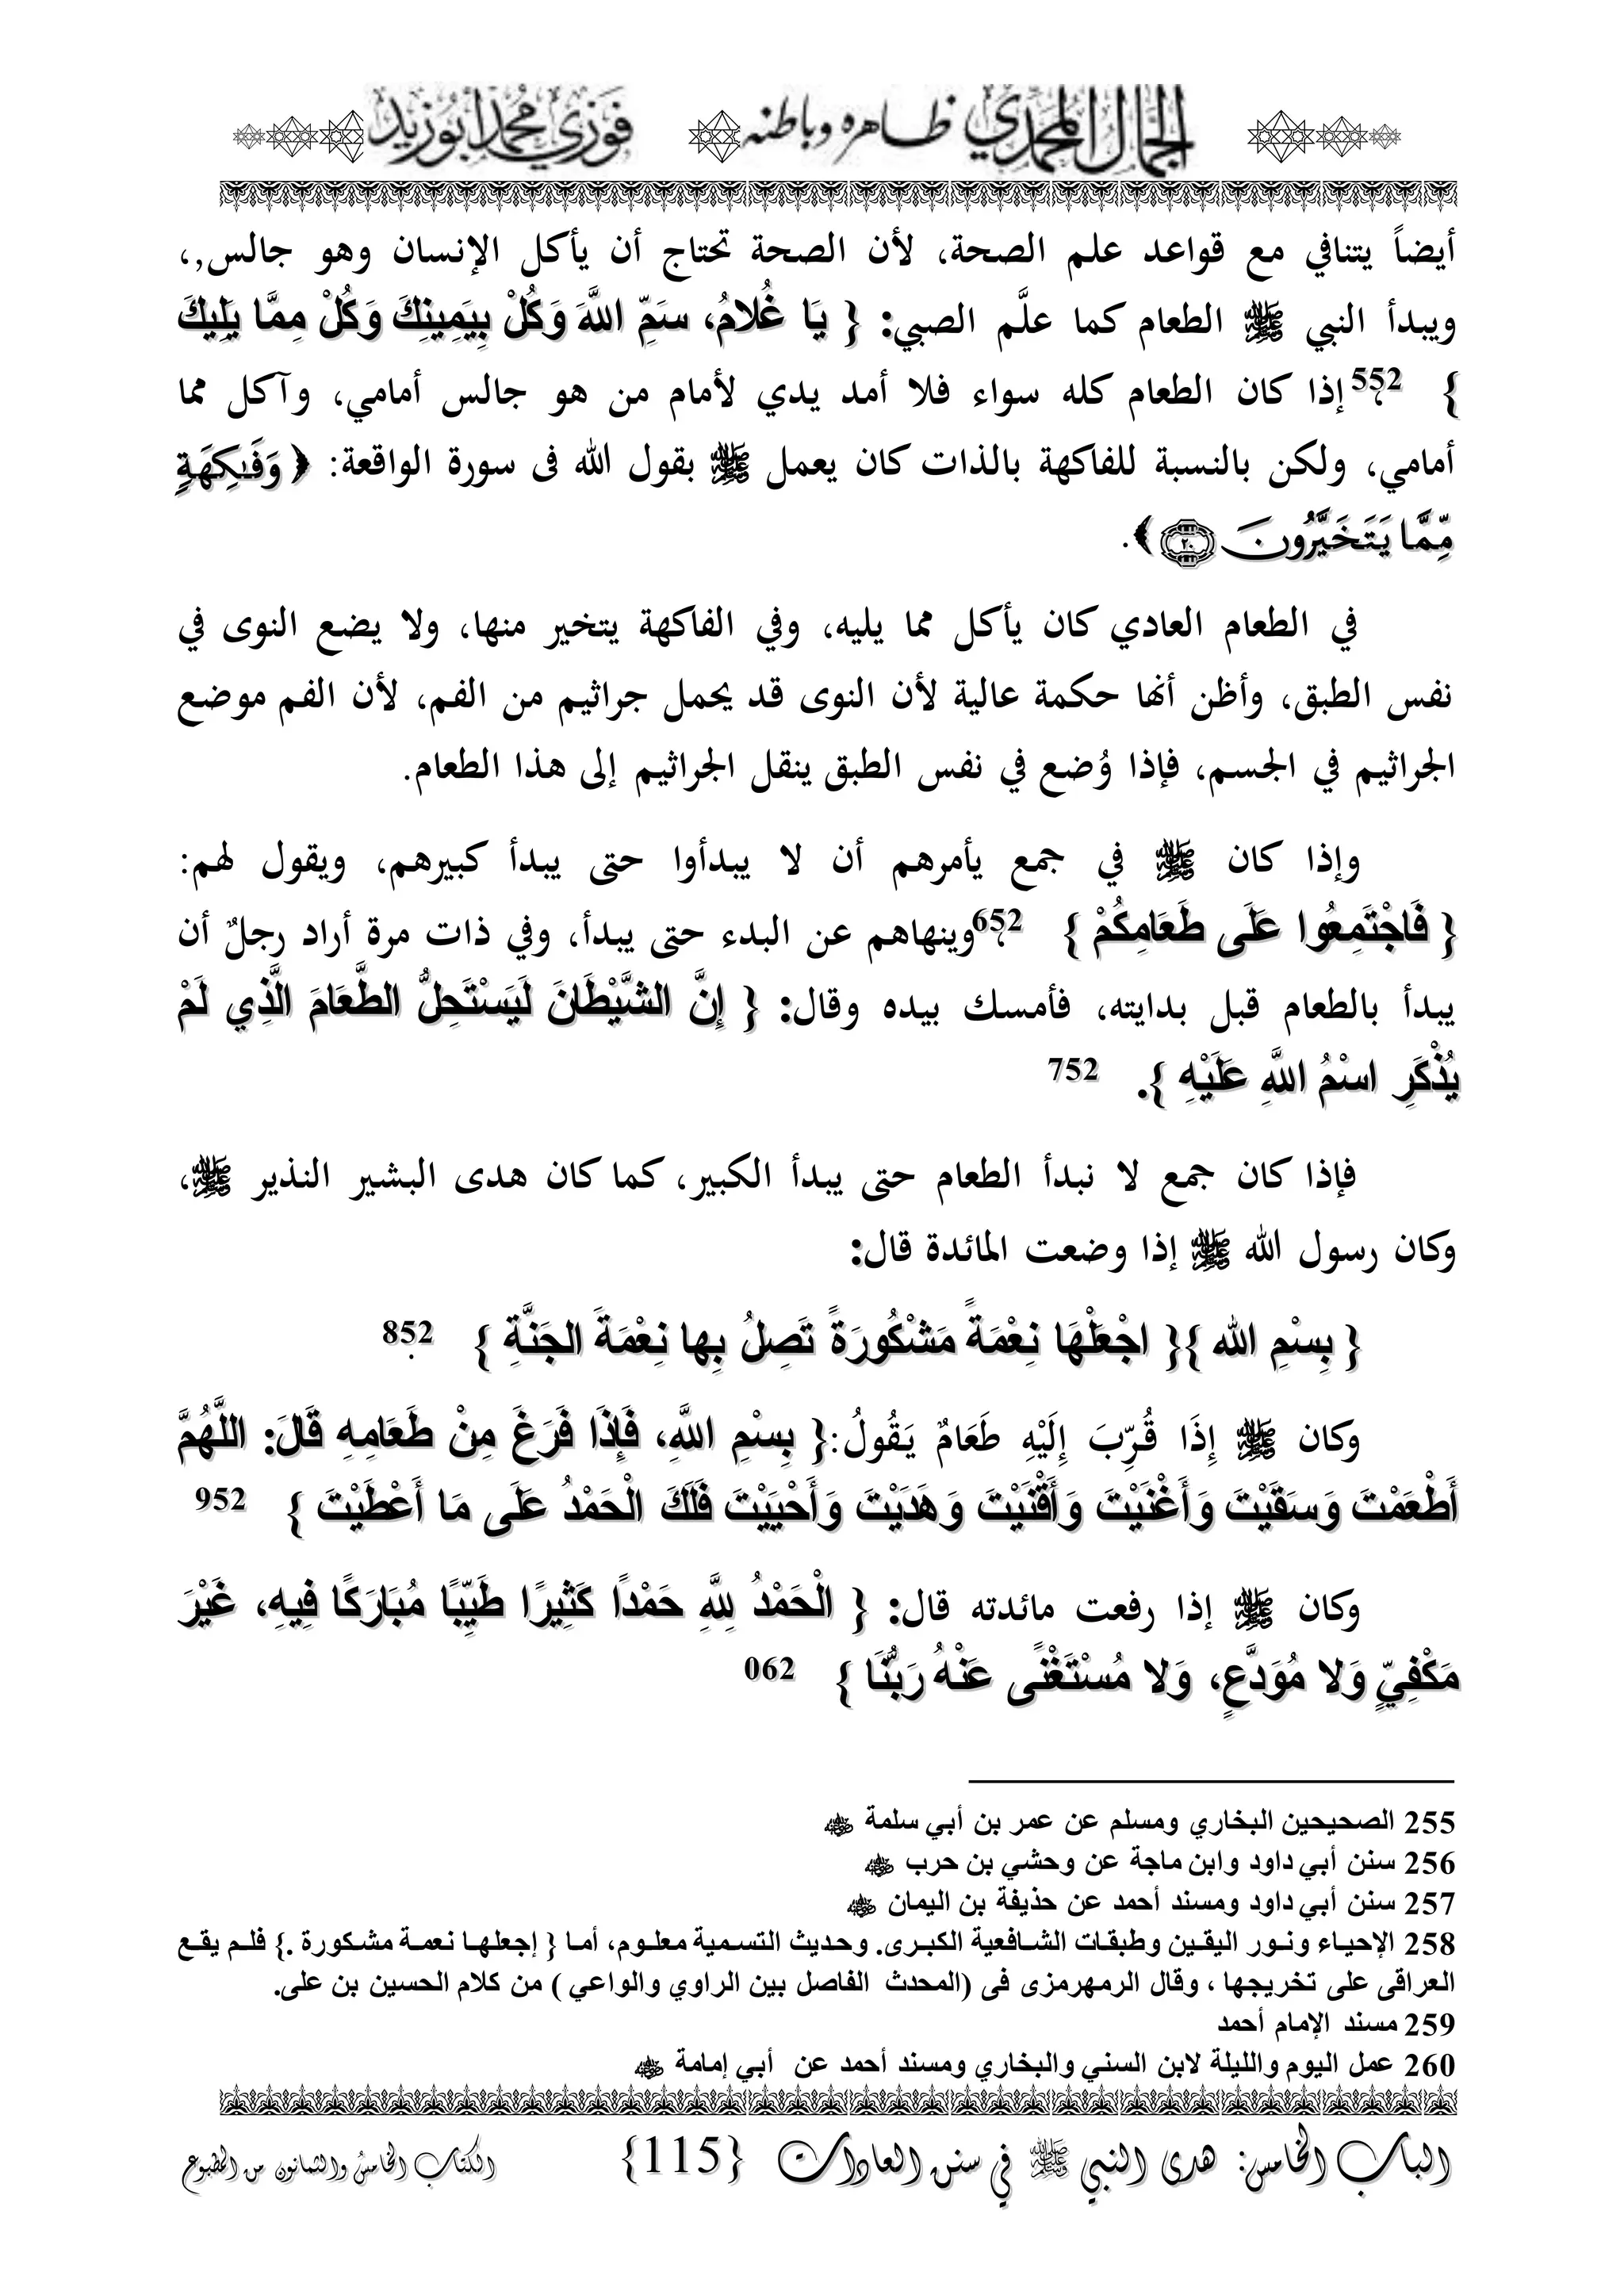 الجمال المحمدي ظاهره وباطنه فوزي محمد أبوزيد
أيضاً يتنافي مع قواعد علم الصحة، لأن الصحة تحتاج أن يأكل الإنسان وهو جالس,،
ويبدأ النبي ﷺ الطعام كما علَّم الصبي: { يَا غُلامُ، سَمِّ اللَّهَ وَكُلْ بِيَمِينِكَ وَكُلْ مِمَّا يَلِيكَ
} 552، إذا كان الطعام كله سواء فلا أمد يدي لأمام من هو جالس أمامي، وآكل مما
أمامي، ولكن بالنسبة للفاكهة بالذات كان يعمل ﷺ بقول الله فى سورة الواقعة: ﴿ وَفَٰكِهَةٍ
مِّمَّا يَتَخَيَّرُونَ ٢٠ ﴾.
في الطعام العادي كان يأكل مما يليه، وفي الفاكهة يتخير منها، ولا يضع النوى في
نفس الطبق، وأظن أنها حكمة عالية لأن النوى قد يحمل جراثيم من الفم، لأن الفم موضع
الجراثيم في الجسم، فإذا وُضع في نفس الطبق ينقل الجراثيم إلى هذا الطعام.
وإذا كان ﷺ في جمع يأمرهم أن لا يبدأوا حتى يبدأ كبيرهم، ويقول لهم:
{ فَاجْتَمِعُوا عَلَى طَعَامِكُمْ } 652، وينهاهم عن البدء حتى يبدأ، وفي ذات مرة أراد رجلٌ أن
يبدأ بالطعام قبل بدايته، فأمسك بيده وقال: { إِنَّ الشَّيْطَانَ لَيَسْتَحِلُّ الطَّعَامَ الَّذِي لَمْ
يُذْكَرِ اسْمُ اللَّهِ عَلَيْهِ }. 752
فإذا كان جمع لا نبدأ الطعام حتى يبدأ الكبير، كما كان هدى البشير النذير ﷺ،
وكان رسول الله ﷺ إذا وضعت المائدة قال:
{ بِسْمِ الله }{ اجْعَلْهَا نِعْمَةً مَشْكُورَةً تَصِلُ بِها نِعْمَةَ الجَنَّةِ } 852.
وكان ﷺ إِذَا قُرِّبَ إِلَيْهِ طَعَامٌ يَقُولُ:{ بِسْمِ اللَّهِ، فَإِذَا فَرَغَ مِنْ طَعَامِهِ قَالَ: اللَّهُمَّ
أَطْعَمْتَ وَسَقَيْتَ وَأَغْنَيْتَ وَأَقْنَيْتَ وَهَدَيْتَ وَأَحْيَيْتَ فَلَكَ الْحَمْدُ عَلَى مَا أَعْطَيْتَ } 952
وكان ﷺ إذا رفعت مائدته قال: { الْحَمْدُ لِلَّهِ حَمْدًا كَثِيرًا طَيِّبًا مُبَارَكًا فِيهِ، غَيْرَ
مَكْفِيٍّ وَلا مُوَدَّعٍ، وَلا مُسْتَغْنًى عَنْهُ رَبُّنَا } 062
255 الصحيحين البخاري ومسلم عن عمر بن أبي سلمة ﵁
256 سنن أبي داود وابن ماجة عن وحشي بن حرب ﵁
257 سنن أبي داود ومسند أحمد عن حذيفة بن اليمان ﵁
258 الإحياء ونور اليقين وطبقات الشافعية الكبرى. وحديث التسمية معلوم، أما { إجعلها نعمة مشكورة .} فلم يقع
العراقى على تخريجها ، وقال الرمهرمزى فى (المحدث الفاصل بين الراوي والواعي ) من كلام الحسين بن على.
259 مسند الإمام أحمد
260 عمل اليوم والليلة لابن السني والبخاري ومسند أحمد عن أبي إمامة ﵁
الباب الخامس: هدى النبي ﷺ في سنن العادات {115} الكتاب الخامس والثمانون من المطبوع